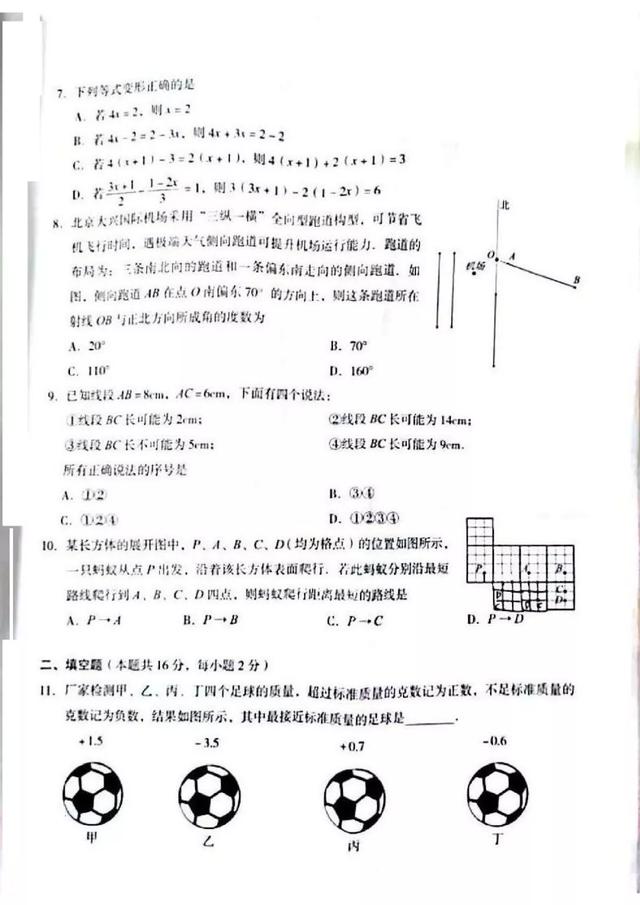 7. 下列等式变形正确的是
A. 若4x=2，则x=2
B. 若4x-2=2-3x，则4x+3x=2-2
C. 若4(x+1)-3=2(x+1)，则4(x+1)+2(x+1)=3
D. 若\frac{3x+1}{2}-\frac{1-2x}{3}=1，则3(3x+1)-2(1-2x)=6
8. 北京大兴国际机场采用“三纵一横”全向型跑道构型，可节省飞
机飞行时间，遇极端天气侧向跑道可提升机场运行能力．跑道的
布局为：三条南北向的跑道和一条偏东南走向的侧向跑道．如
图，侧向跑道AB在点O南偏东70°的方向上，则这条跑道所在
射线OB与正北方向所成角的度数为
北
O A
机场
B
A. 20° B. 70°
C. 110° D. 160°
9. 已知线段AB=8cm，AC=6cm，下面有四个说法：
①线段BC长可能为2cm； ②线段BC长可能为14cm；
③线段BC长不可能为5cm； ④线段BC长可能为9cm．
所有正确说法的序号是
A. ①② B. ③④
C. ①②④ D. ①②③④
10. 某长方体的展开图中，P、A、B、C、D(均为格点)的位置如图所示，
一只蚂蚁从点P出发，沿着该长方体表面爬行．若此蚂蚁分别沿最短
路线爬行到A、B、C、D四点，则蚂蚁爬行距离最短的路线是
P A B
C
D
A. P→A B. P→B C. P→C D. P→D
二、填空题(本题共16分，每小题2分)
11. 厂家检测甲、乙、丙、丁四个足球的质量，超过标准质量的克数记为正数，不足标准质量的
克数记为负数，结果如图所示，其中最接近标准质量的足球是______．
+1.5 -3.5 +0.7 -0.6
甲 乙 丙 丁